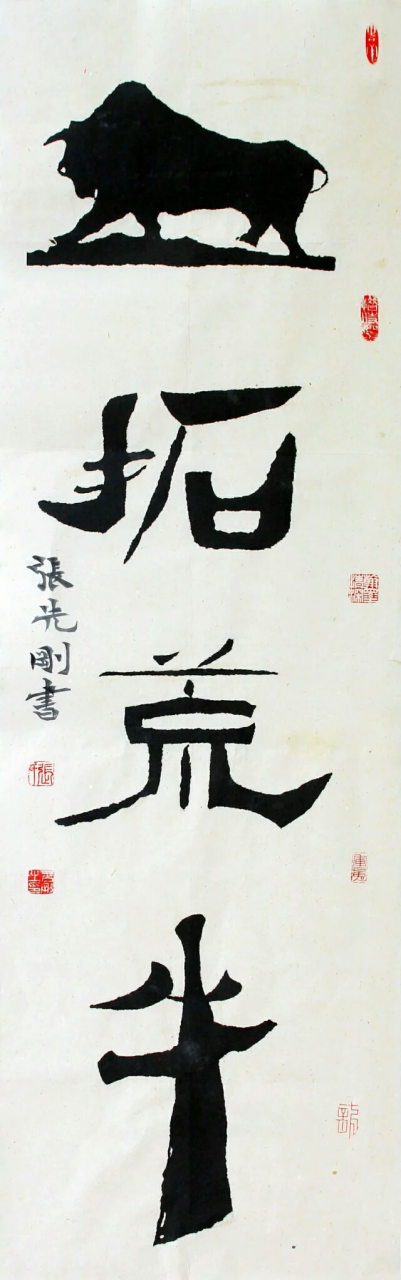 拓荒牛
張先剛書